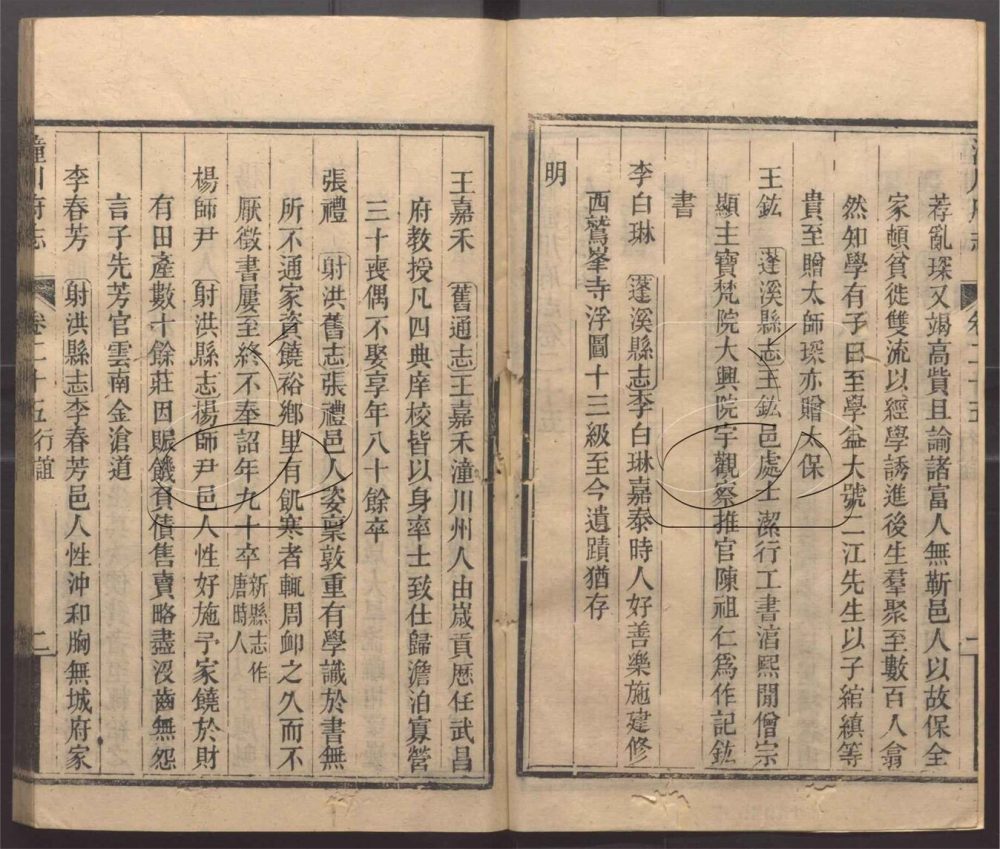 荐亂琛又竭高貲且諭諸富人無靳邑人以故保全
家頓貧徙雙流以經學誘進後生羣聚至數百人翕
然知學有子曰至學益大號二江先生以子綰縝等
貴至贈太師琛亦贈太保
王鈜 蓬溪縣志王鈜邑處士潔行工書淯熙閒僧宗
顯主寶梵院大興院宇觀察推官陳祖仁爲作記鈜
書
李白琳 蓬溪縣志李白琳嘉泰時人好善樂施建修
西鷲峯寺浮圖十三級至今遺蹟猶存
明
王嘉禾 舊通志王嘉禾潼川州人由歲貢歷任武昌
府教授凡四典庠校皆以身率士致仕歸澹泊寡營
三十喪偶不娶享年八十餘卒
張禮 射洪舊志張禮邑人姿稟敦重有學識於書無
所不通家資饒裕鄉里有飢寒者輒周卹之久而不
厭徵書屢至終不奉詔年九十卒 新縣志作唐時人
楊師尹 射洪縣志楊師尹邑人性好施予家饒於財
有田產數十餘莊因賑饑負債售賣略盡沒齒無怨
言子先芳官雲南金滄道
李春芳 射洪縣志李春芳邑人性沖和胸無城府家
潼川府志 卷二十五 行誼 二